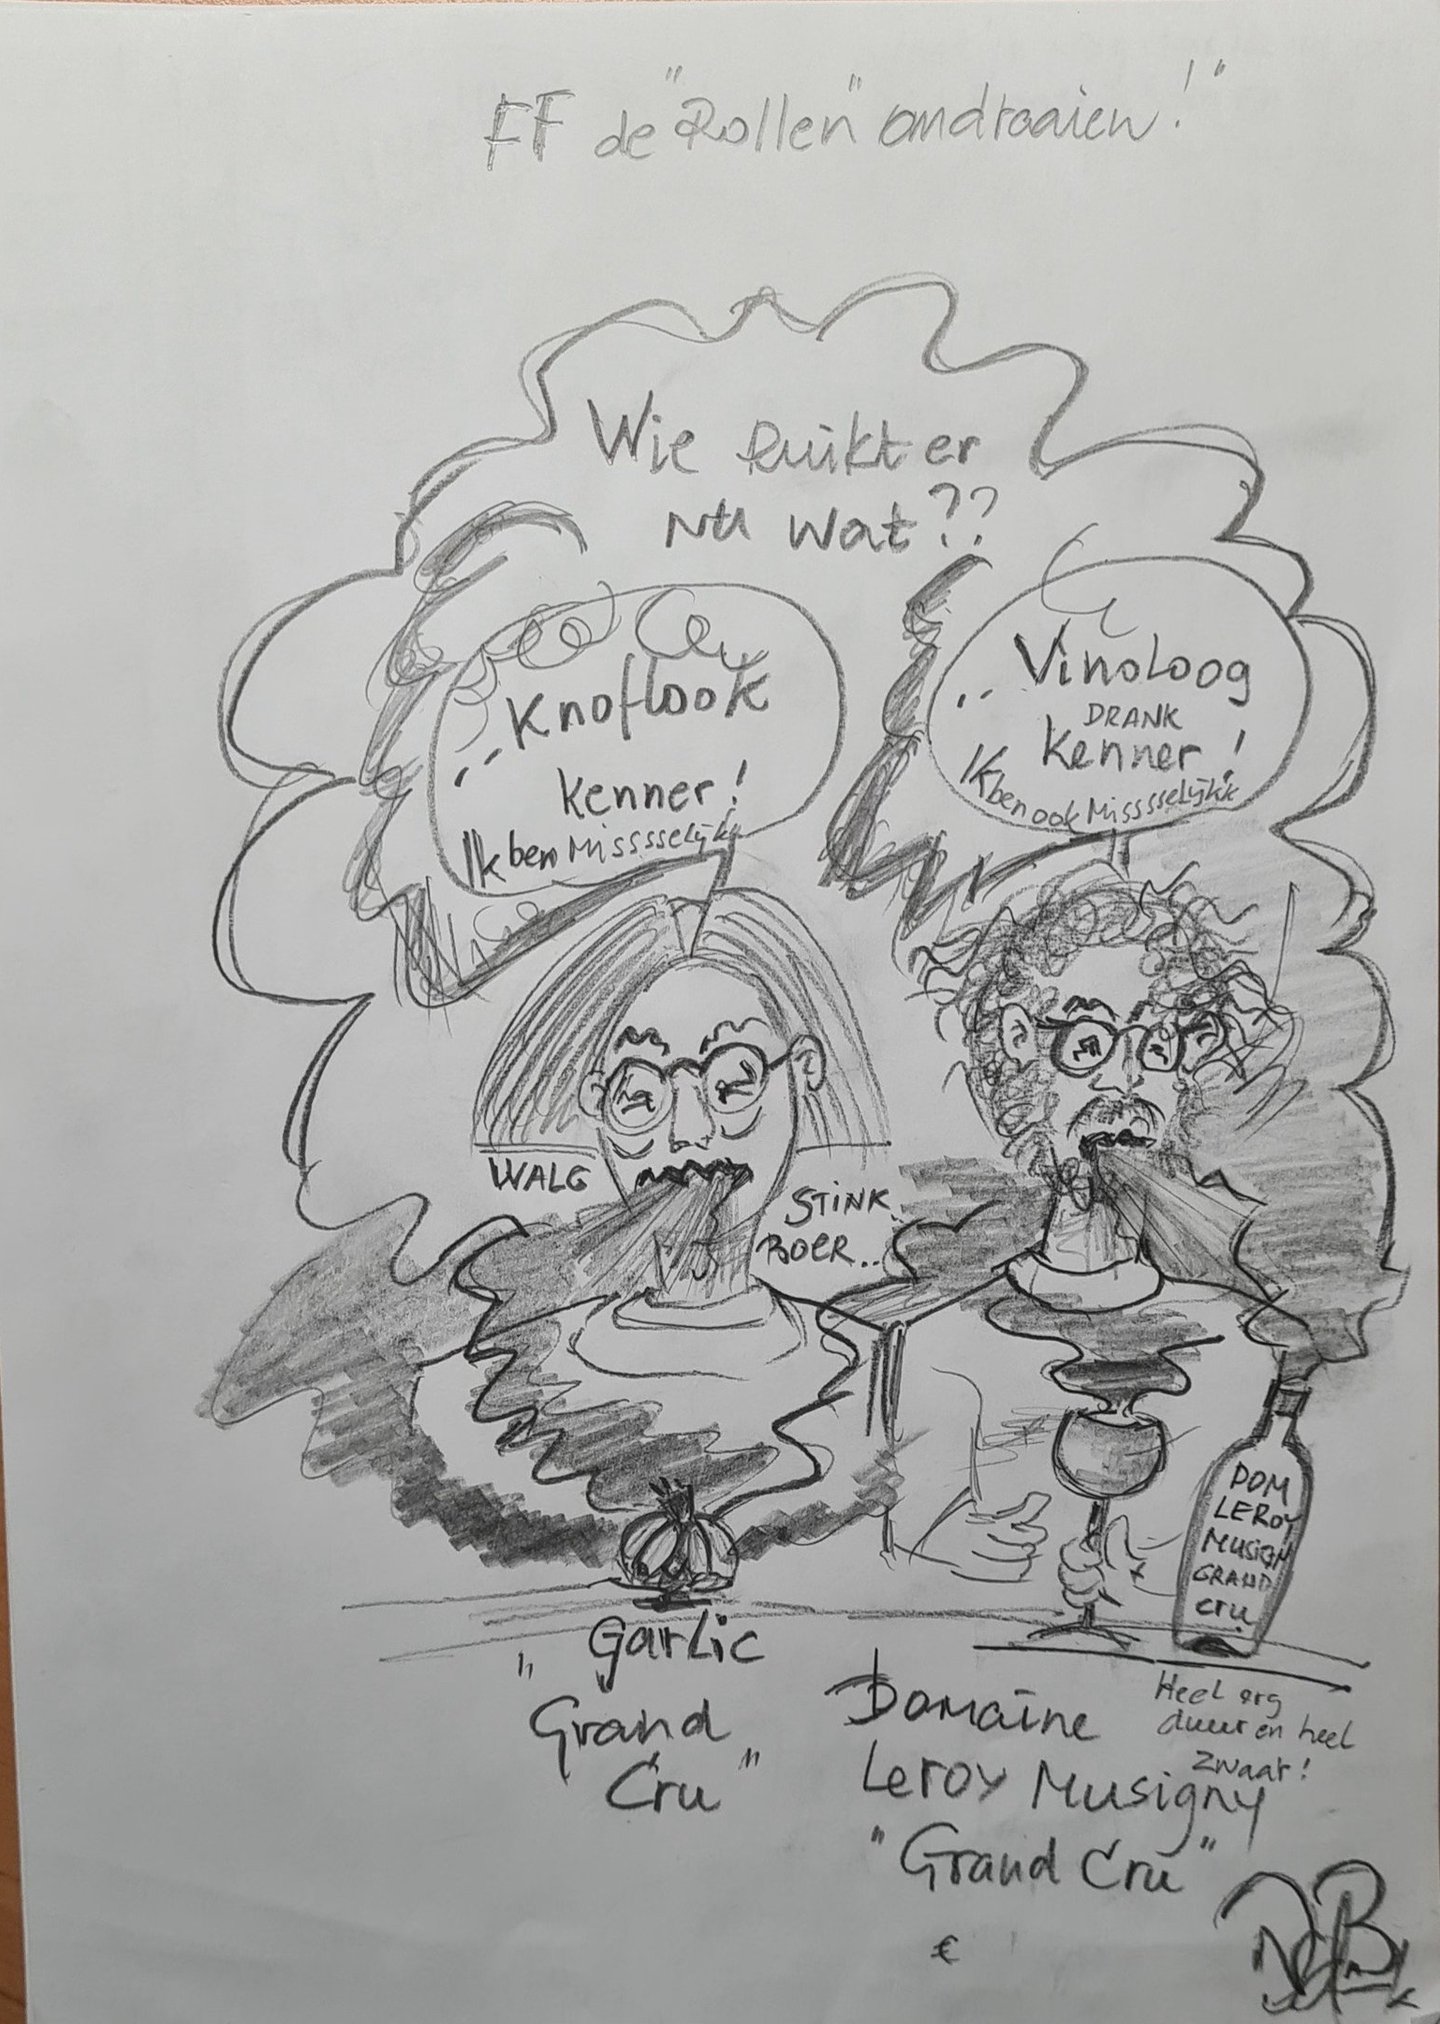 FF de "Rollen" omdraaien!"
Wie Ruikt er
nu wat??
Knoflook
kenner!
Ik ben Misssselijkk
Vinoloog
DRANK
kenner!
Ik ben ook Misssselijkk
WALG
STINK
BOER..
DOM
LEROY
MUSIGN
GRAND
cru
Garlic
"Grand
Cru"
Domaine
Leroy Musigny
"Grand Cru"
Heel erg
duur en heel
zwaar!
€